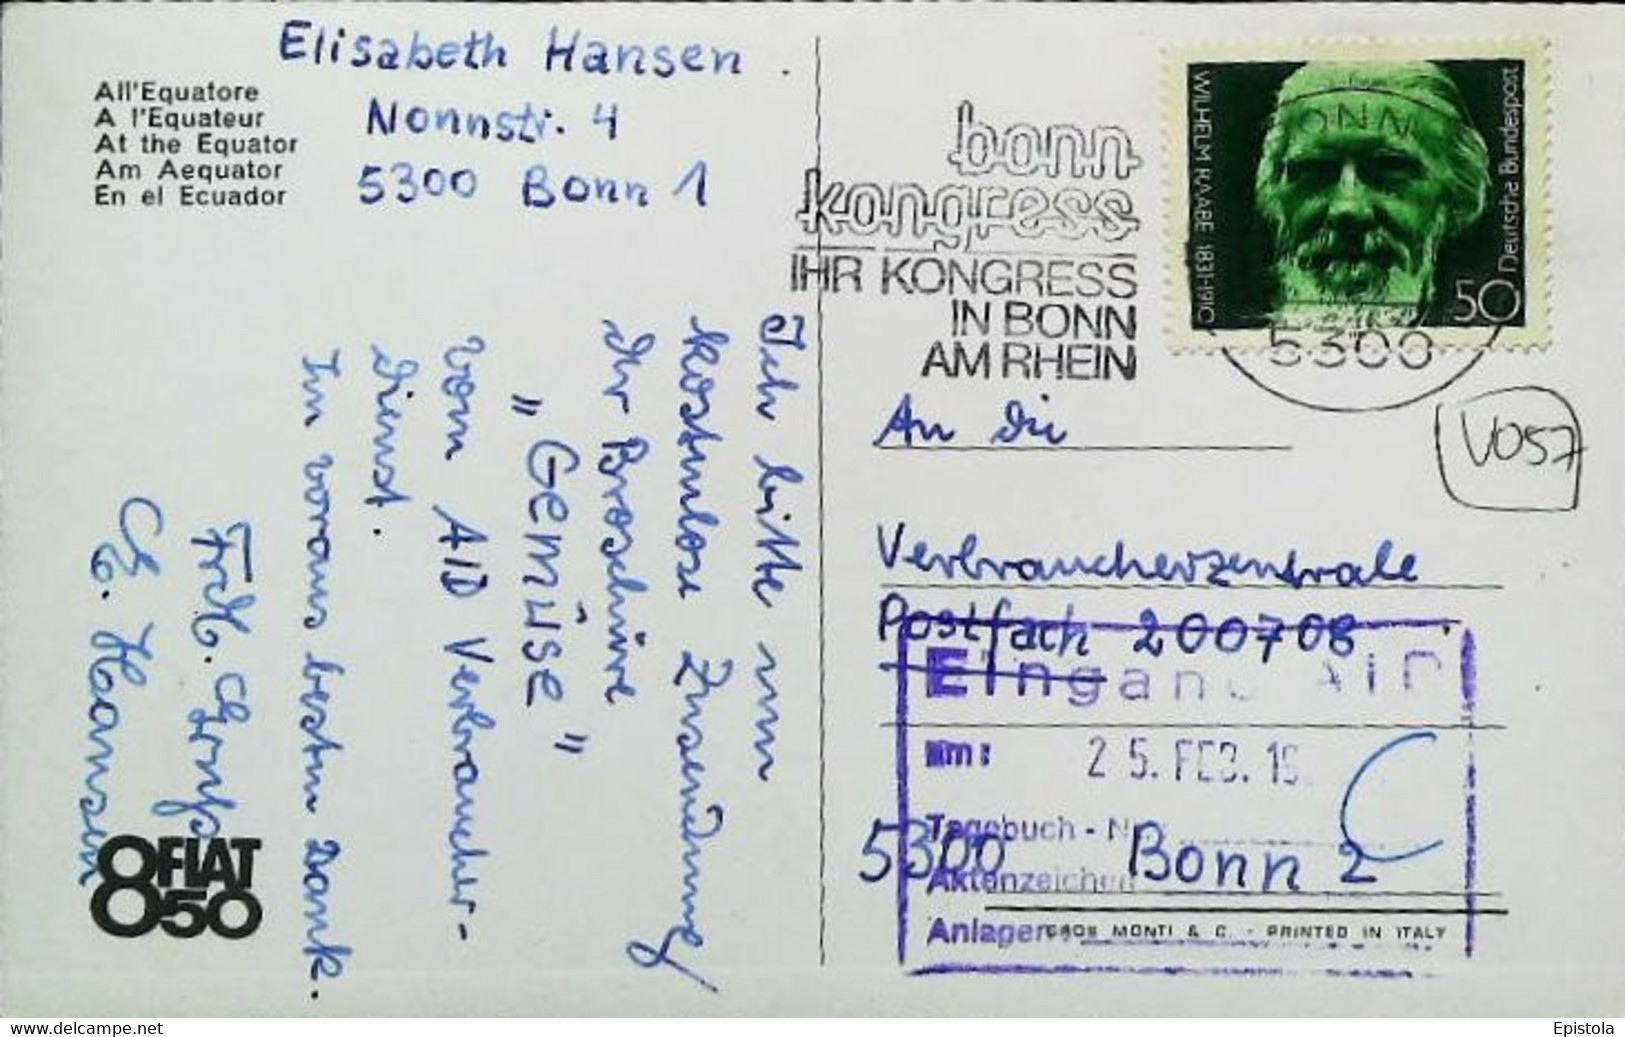 Elisabeth Hansen
Nonnstr. 4
5300 Bonn 1
All'Equatore
A l'Equateur
At the Equator
Am Aequator
En el Ecuador
Ich bitte um
kostenlose Zusendung
Ihr Broschüre
"GEMÜSE"
von AID Verbraucher-
dienst.
Im voraus besten Dank.
Frdl.
E. Hansen
FIAT
850
bonn
kongress
IHR KONGRESS
IN BONN
AM RHEIN
BONN
5300
WILHELM RAABE 1831-1910
Deutsche Bundespost
50
VO57
An die
Verbraucherzentrale
Postfach 200708
5300 Bonn 2
Eingang AID
am: 25. FEB. 19
Tagebuch - Nr.
Aktenzeichen
Anlagen:
MONTI & C. - PRINTED IN ITALY
www.delcampe.net
Epistola